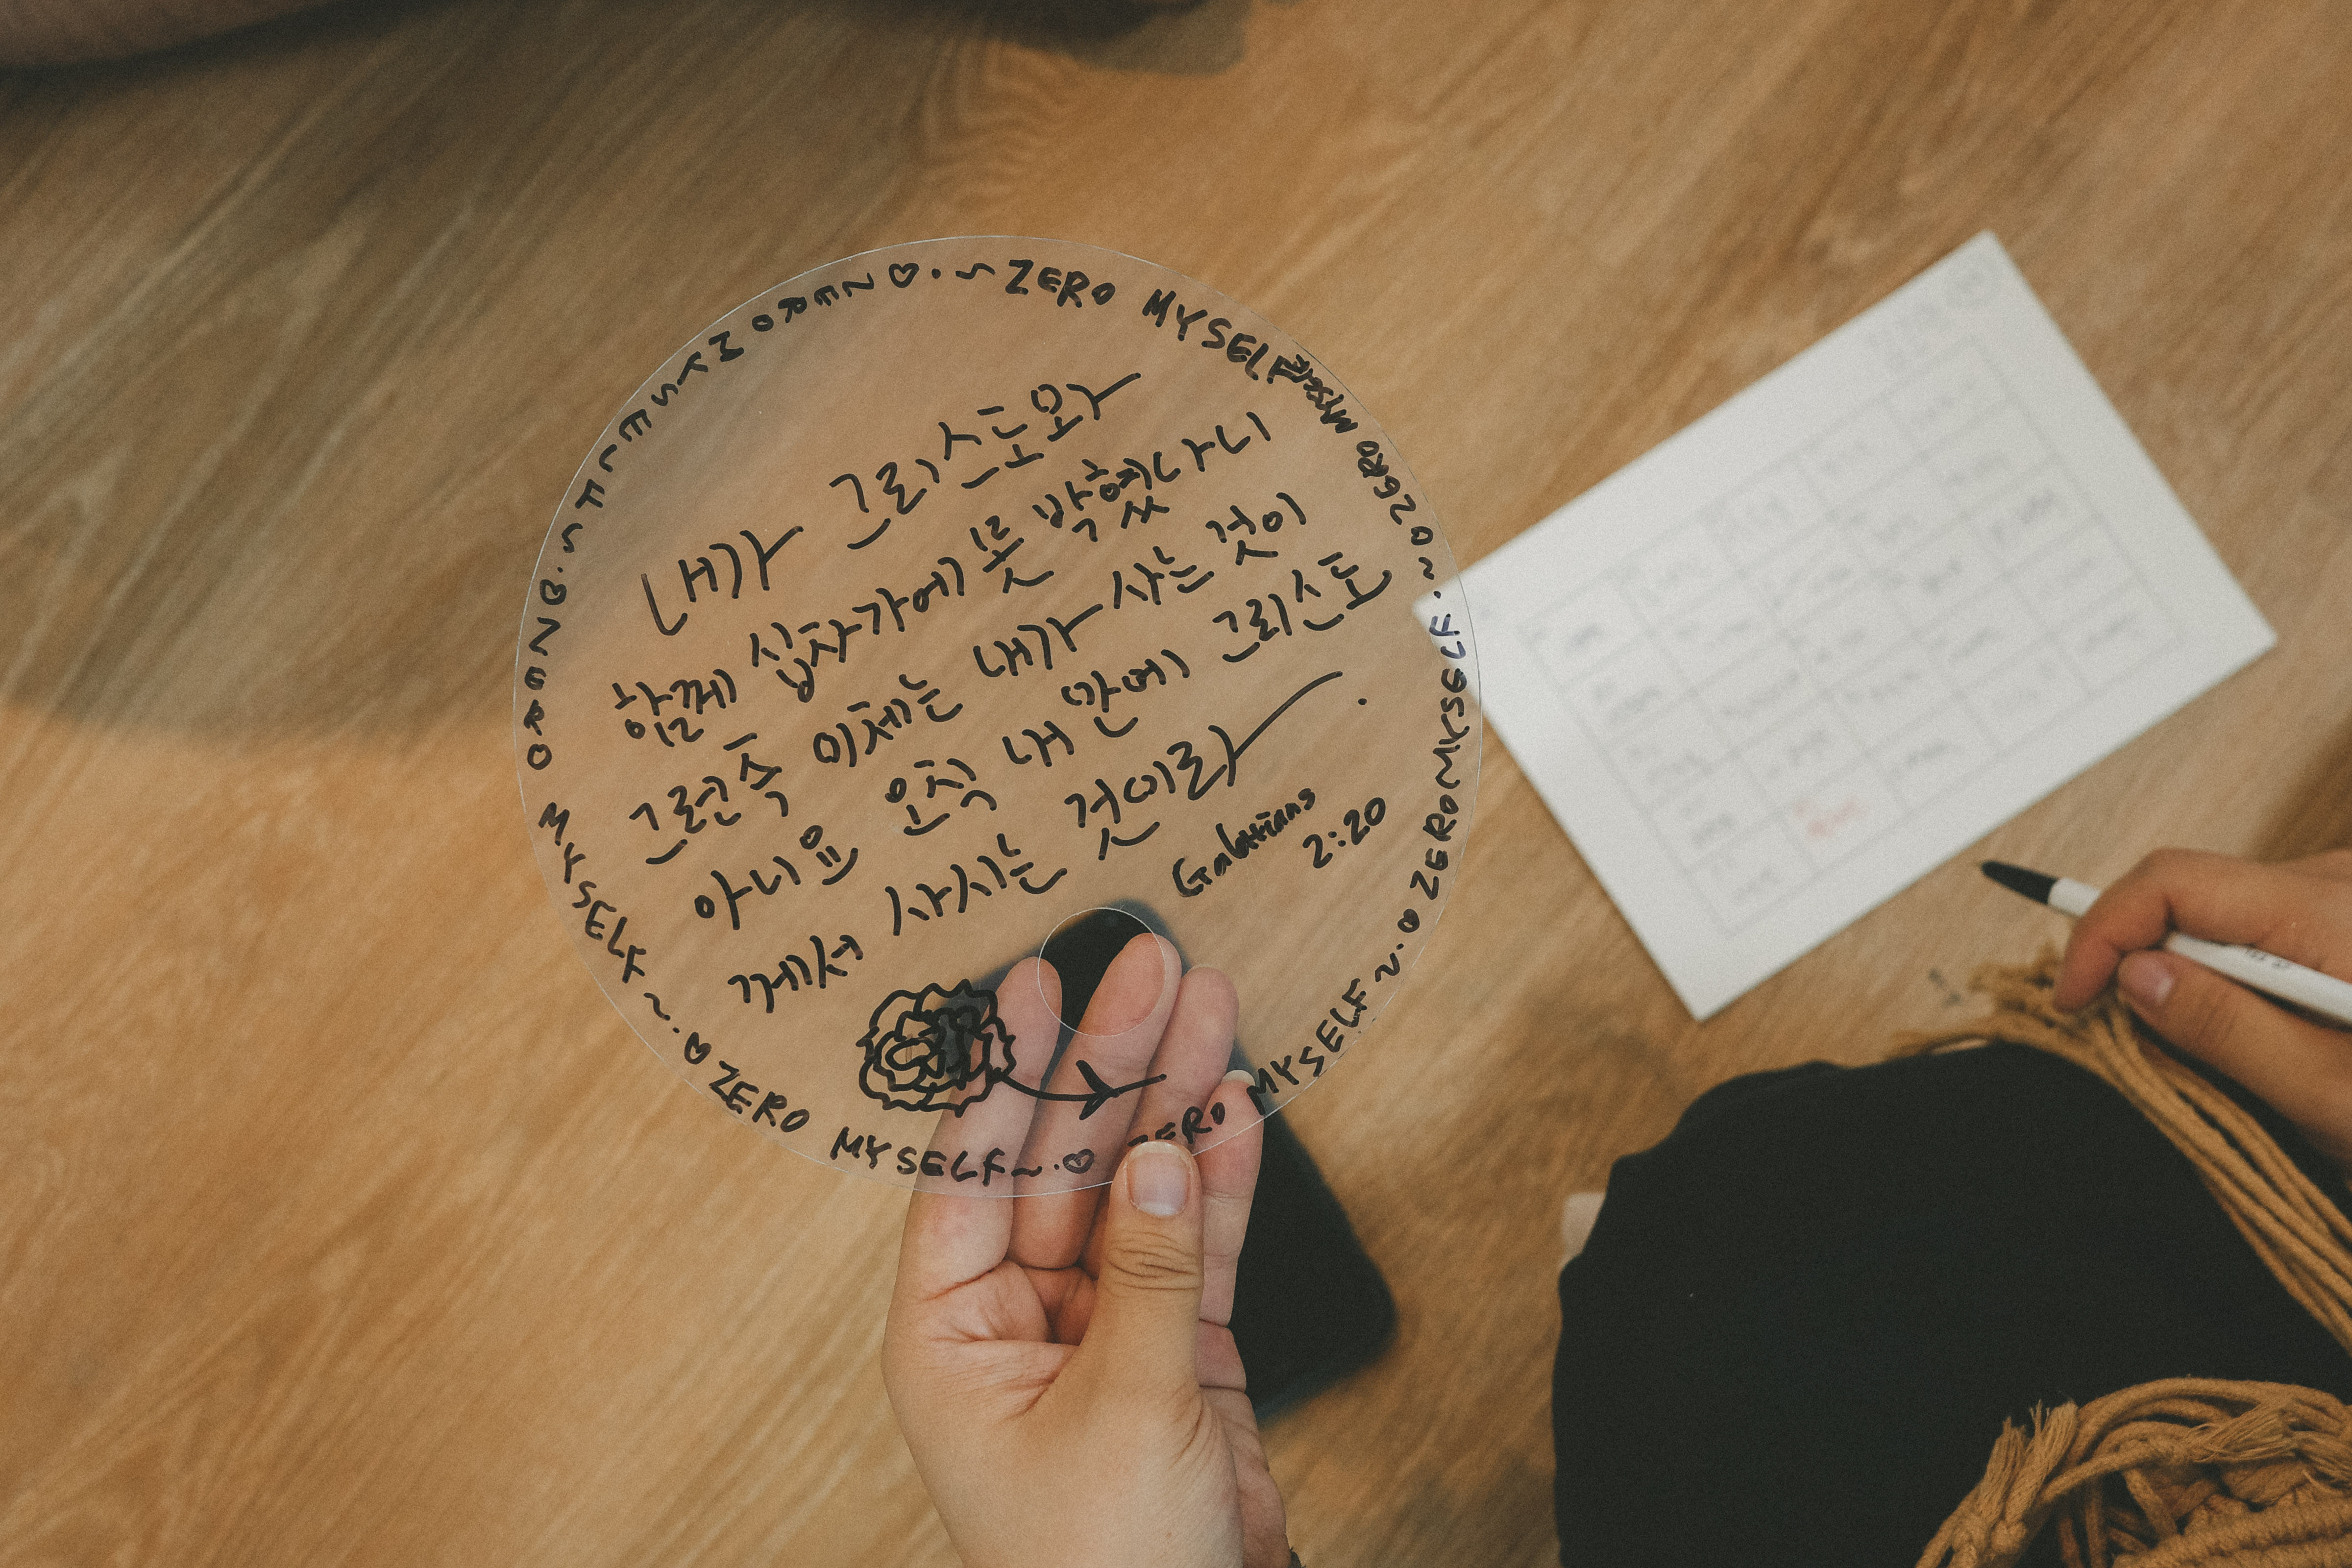 내가 그리스도와
함께 십자가에 못 박혔나니
그런즉 이제는 내가 사는 것이
아니요 오직 내 안에 그리스도
께서 사시는 것이라.
Galatians
2:20
ZERO MYSELF
ZERO MYSELF
ZERO MYSELF
ZERO MYSELF
ZERO MYSELF
ZERO MYSELF